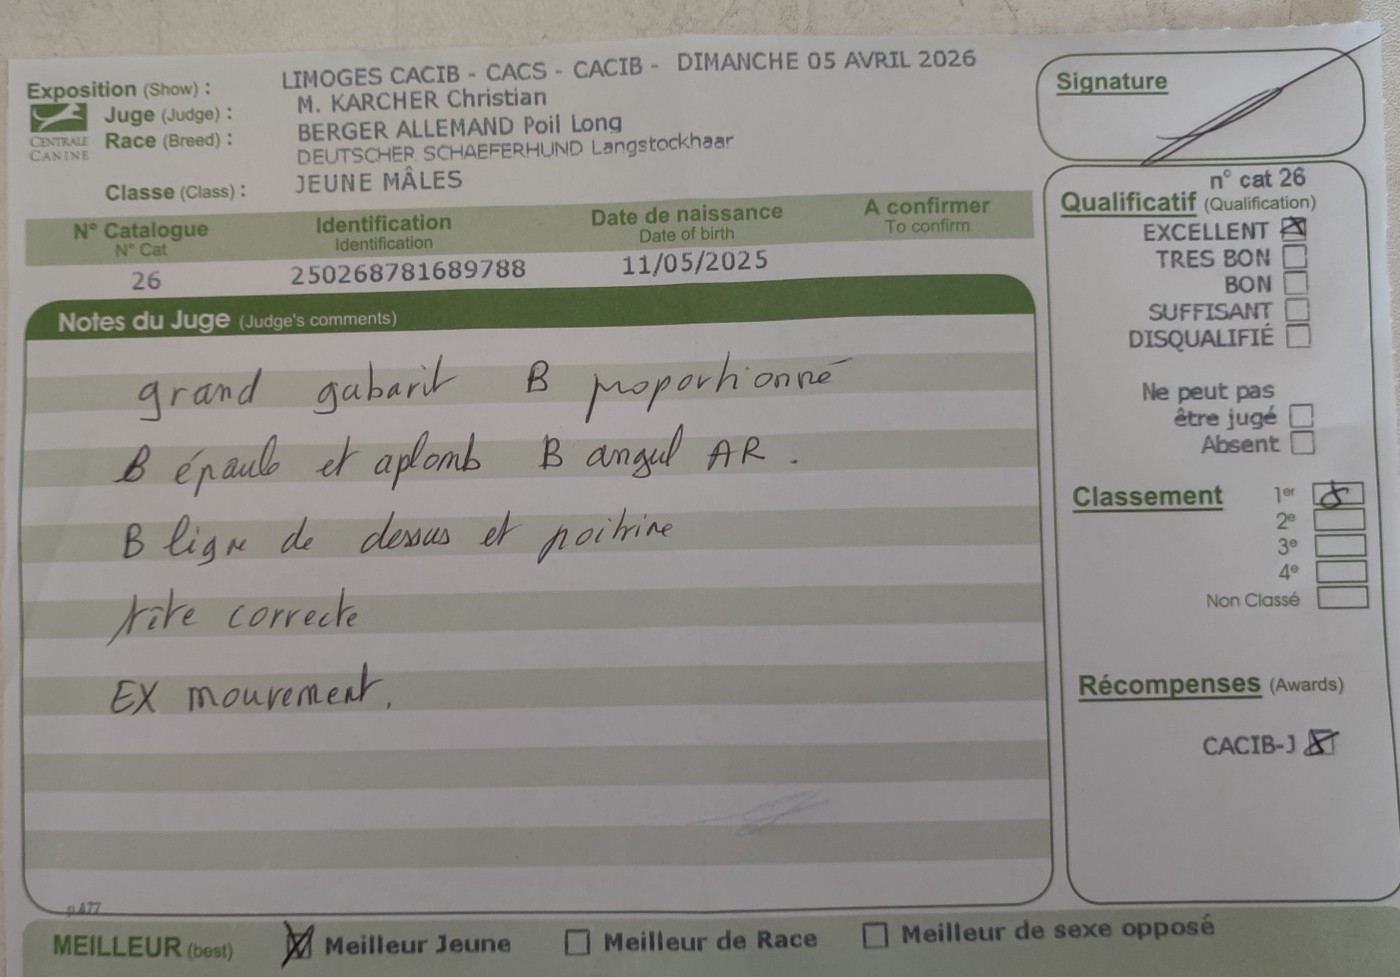 Exposition (Show) : LIMOGES CACIB - CACS - CACIB - DIMANCHE 05 AVRIL 2026
Juge (Judge) : M. KARCHER Christian
Race (Breed) : BERGER ALLEMAND Poil Long
DEUTSCHER SCHAEFERHUND Langstockhaar
CENTRALE
CANINE
Classe (Class) : JEUNE MÂLES
N° Catalogue Identification Date de naissance A confirmer
N° Cat Identification Date of birth To confirm
26 250268781689788 11/05/2025
Notes du Juge (Judge's comments)
grand gabarit B proportionné
B épaule et aplomb B angul AR.
B ligne de dessus et poitrine
tête correcte
EX mouvement.
p.477
MEILLEUR (best) Meilleur Jeune Meilleur de Race Meilleur de sexe opposé
Signature
n° cat 26
Qualificatif (Qualification)
EXCELLENT
TRES BON
BON
SUFFISANT
DISQUALIFIÉ
Ne peut pas
être jugé
Absent
Classement 1er
2e
3e
4e
Non Classé
Récompenses (Awards)
CACIB-J